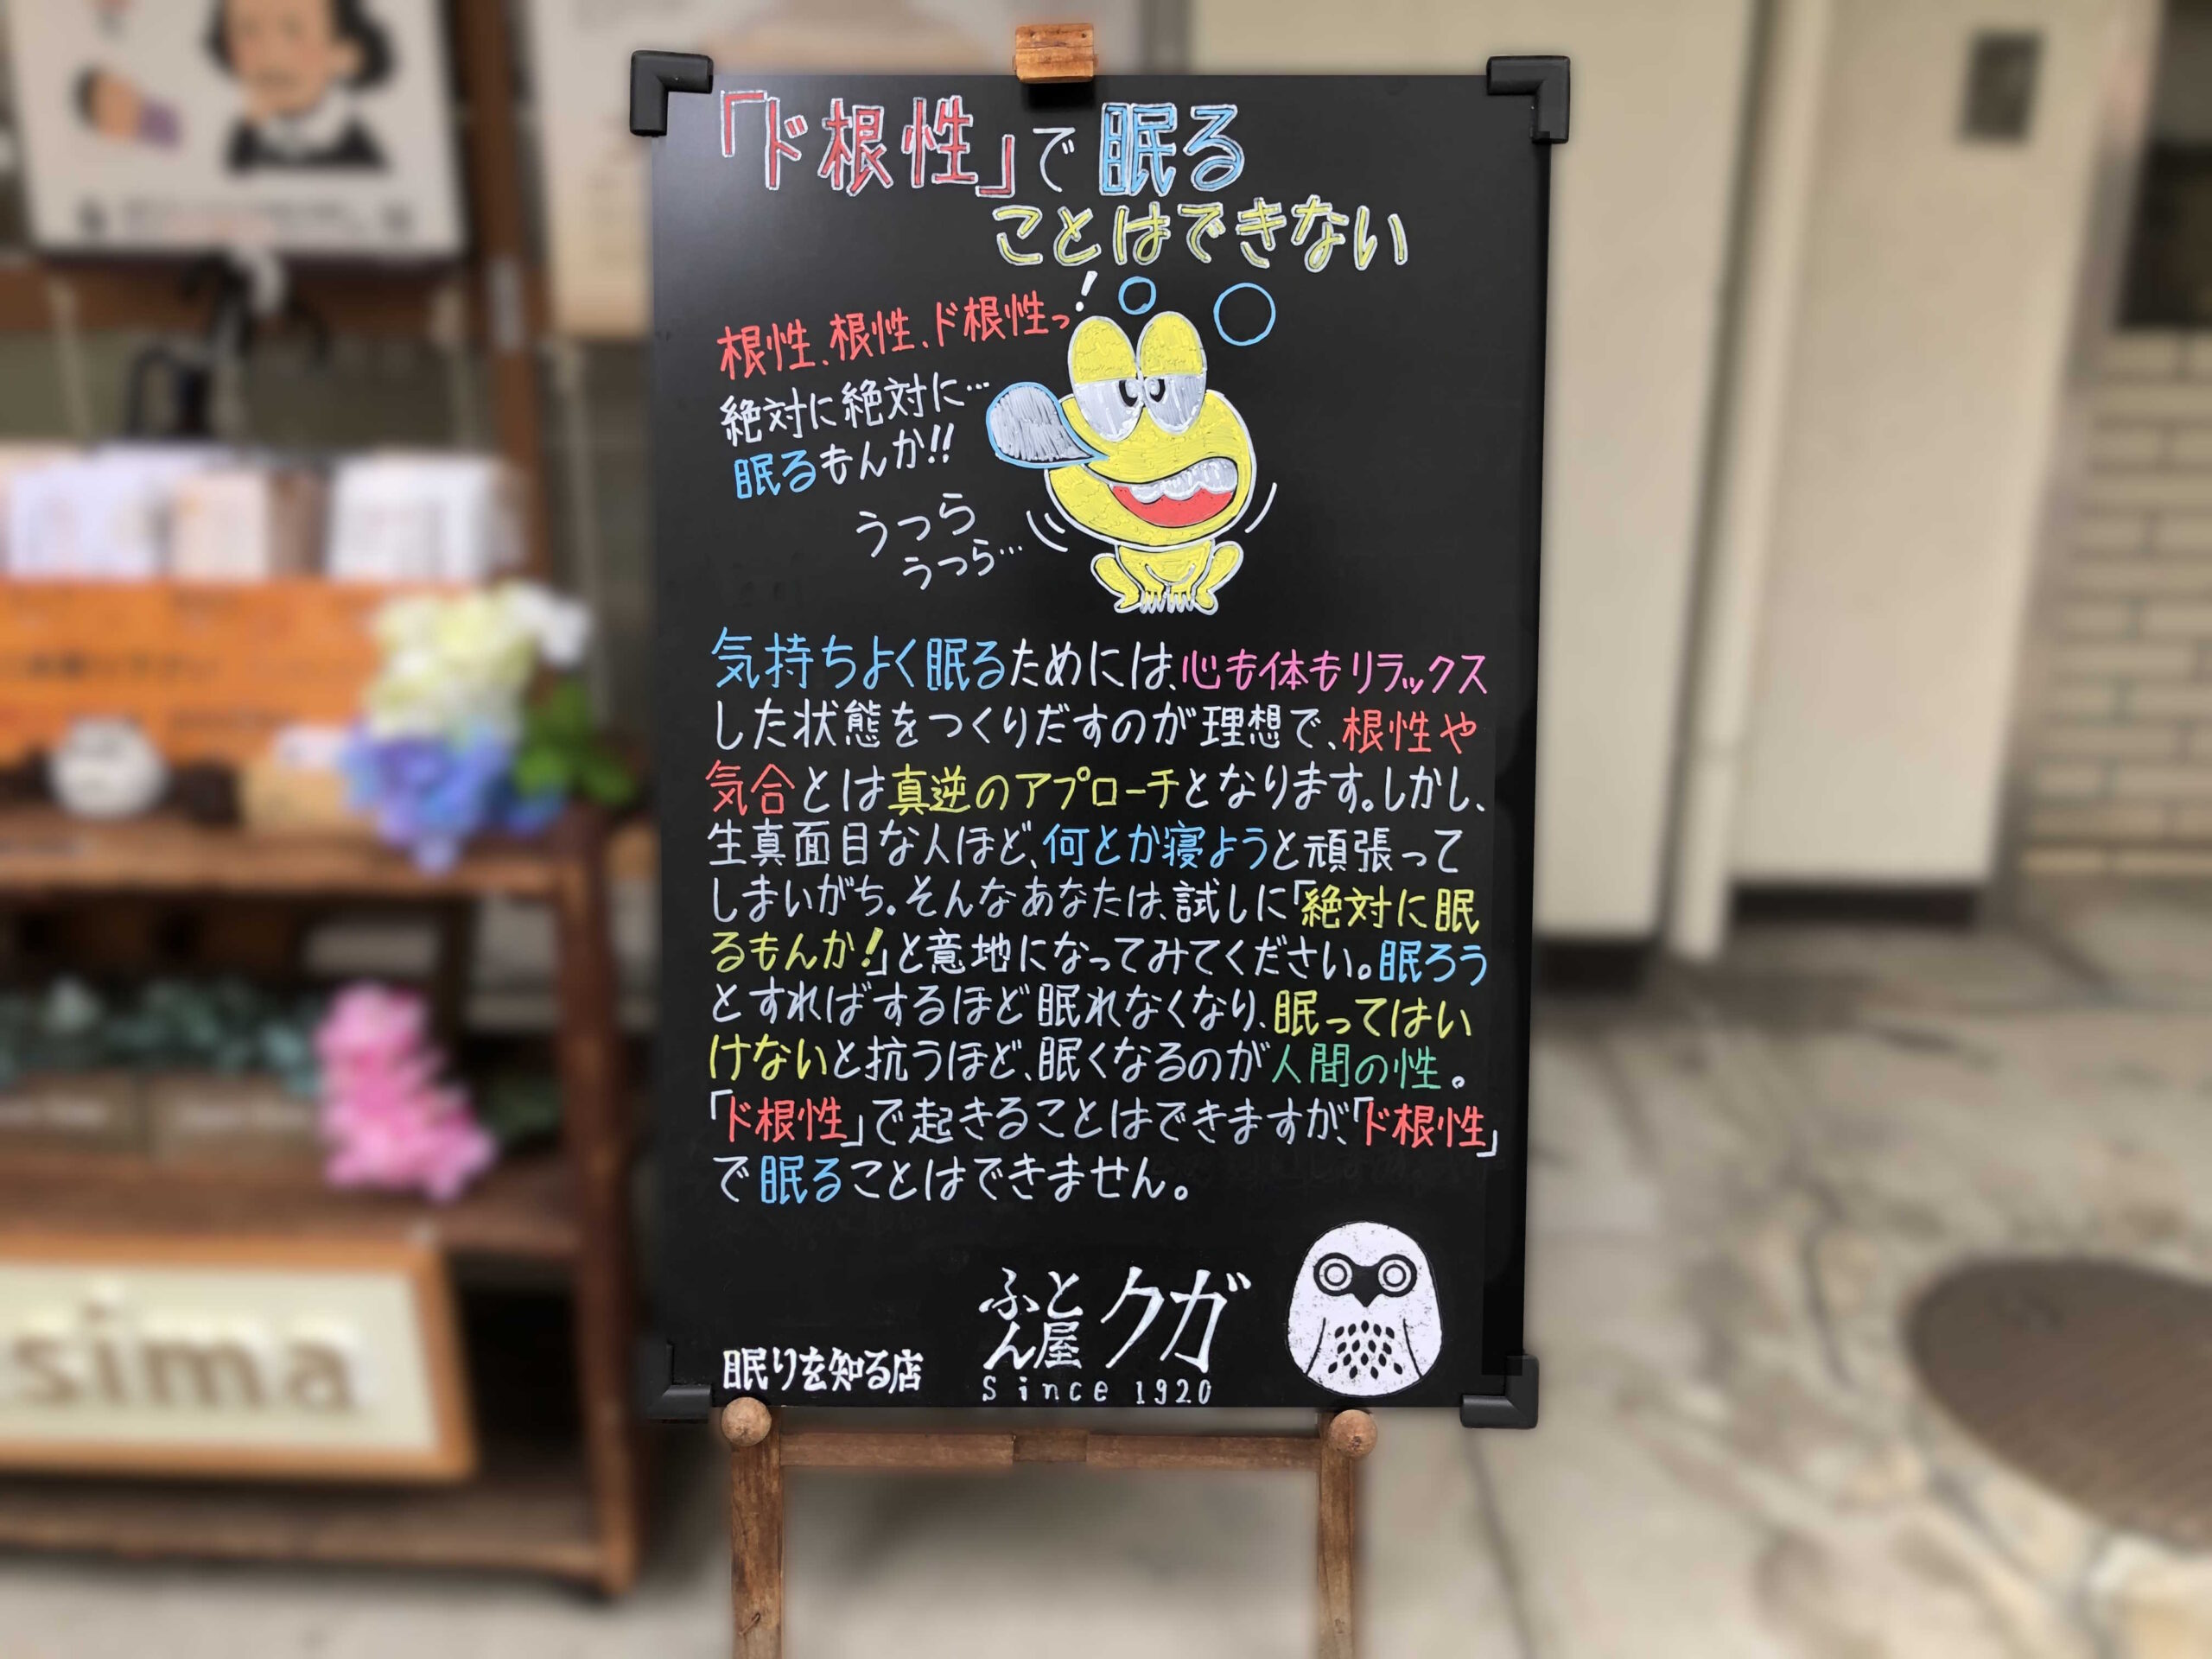 「ド根性」で眠る
ことはできない
根性、根性、ド根性っ!
絶対に絶対に…
眠るもんか!!
うつら
うつら…
気持ちよく眠るためには、心も体もリラックス
した状態をつくりだすのが理想で、根性や
気合とは真逆のアプローチとなります。しかし、
生真面目な人ほど、何とか寝ようと頑張って
しまいがち。そんなあなたは、試しに「絶対に眠
るもんか!」と意地になってみてください。眠ろう
とすればするほど眠れなくなり、眠ってはい
けないと抗うほど、眠くなるのが人間の性。
「ド根性」で起きることはできますが、「ド根性」
で眠ることはできません。
眠りを知る店
ふとん屋クガ
Since 1920
sima